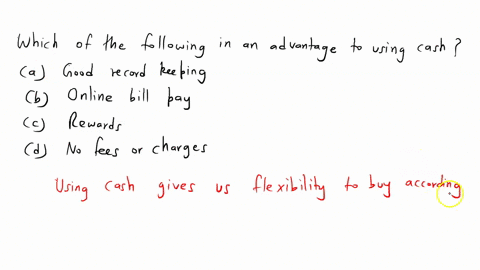 Which of the following in an advantage to using cash?
(a) Good record keeping
(b) Online bill pay
(c) Rewards
(d) No fees or charges
Using cash gives us flexibility to buy according